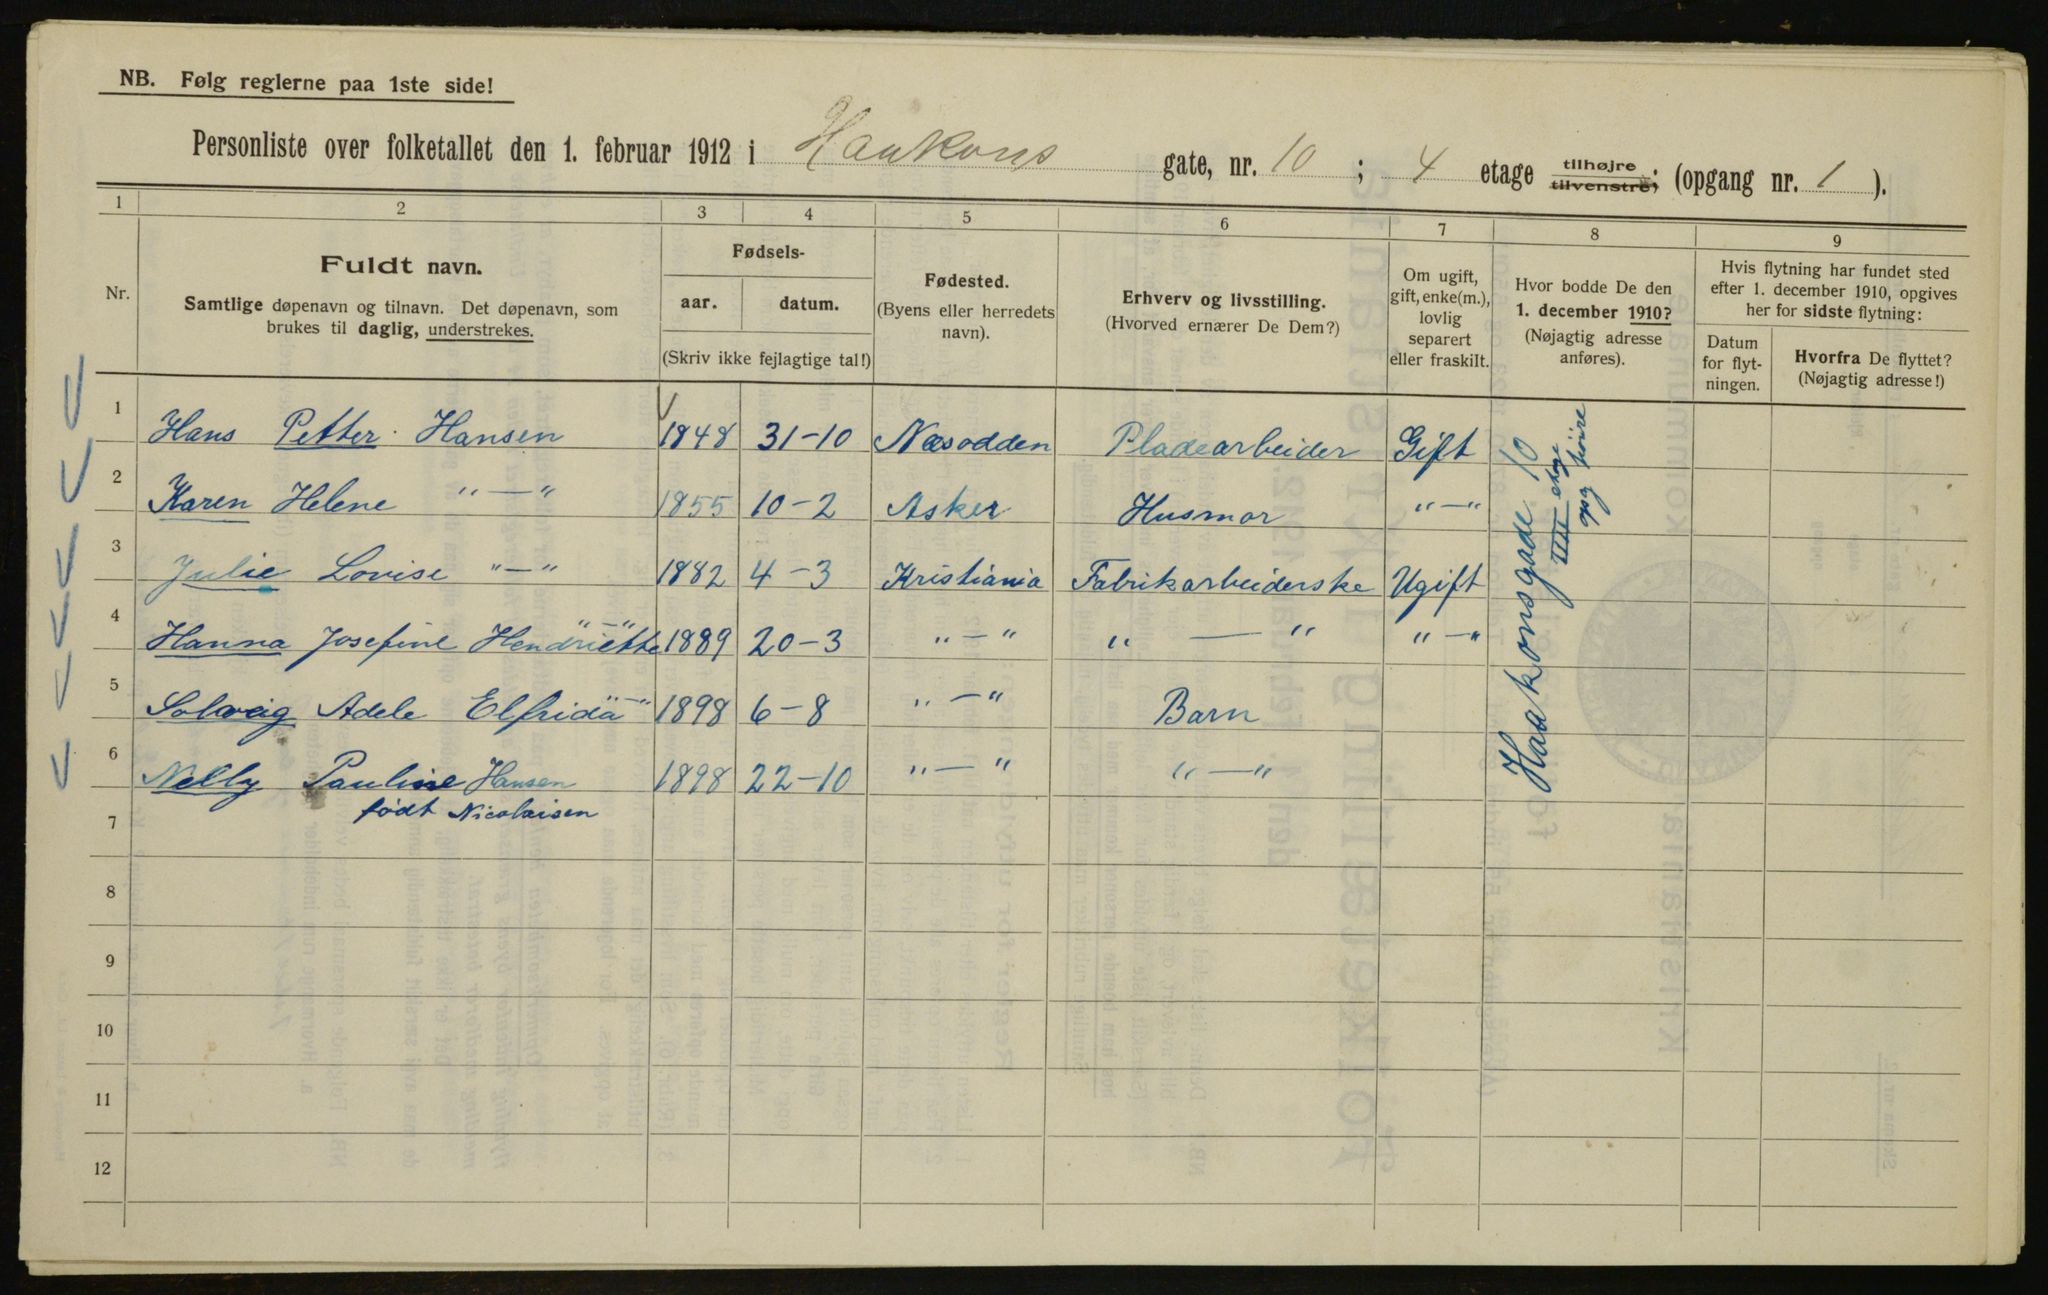 NB. Følg reglerne paa 1ste side!
Personliste over folketallet den 1. februar 1912 i Haakons gate, nr. 10 ; 4 etage tilhøjre tilvenstre; (opgang nr. 1 ).
1 2 3 4 5 6 7 8 9
Nr.
Fuldt navn.
Samtlige døpenavn og tilnavn. Det døpenavn, som
brukes til daglig, understrekes.
Fødsels-
aar. datum.
(Skriv ikke fejlagtige tal!)
Fødested.
(Byens eller herredets
navn).
Erhverv og livsstilling.
(Hvorved ernærer De Dem?)
Om ugift,
gift, enke(m.),
lovlig
separert
eller fraskilt.
Hvor bodde De den
1. december 1910?
(Nøjagtig adresse
anføres).
Hvis flytning har fundet sted
efter 1. december 1910, opgives
her for sidste flytning:
Datum
for flyt-
ningen.
Hvorfra De flyttet?
(Nøjagtig adresse!)
1 Hans Petter Hansen 1848 31-10 Næsodden Pladearbeider Gift
2 Karen Helene "—" 1855 10-2 Asker Husmor "—"
3 Julie Lovise "—" 1882 4-3 Kristiania Fabrikarbeiderske Ugift
4 Hanna Josefine Hendriette "—" 1889 20-3 "—" "—" "—"
5 Solveig Adele Elfrida "—" 1898 6-8 "—" Barn
6 Nelly Pauline Hansen 1898 22-10 "—" "—"
født Nicolaisen
7
8
9
10
11
12
Haakonsgade 10
etage
opg høire